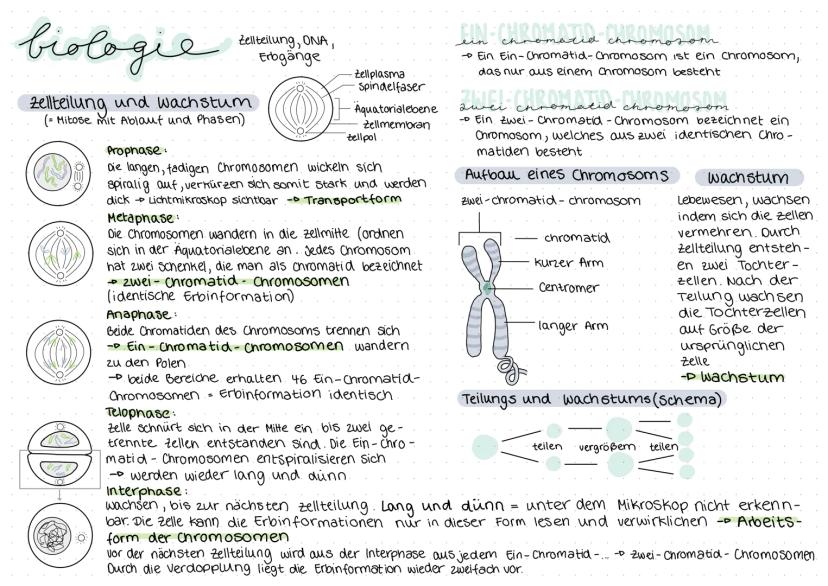 biologie
Zellteilung, DNA,
Erbgänge
Zellteilung und Wachstum
(= Mitose mit Ablauf und Phasen)
Zellplasma
Spindelfaser
Äquatorialebene
Zellmembran
Zellpol
Prophase:
Die langen, fädigen Chromosomen wickeln sich
spiralig auf, verkürzen sich somit stark und werden
dick → Lichtmikroskop sichtbar → Transportform
Metaphase:
Die Chromosomen wandern in die Zellmitte (ordnen
sich in der Äquatorialebene an. Jedes Chromosom
hat zwei Schenkel, die man als Chromatid bezeichnet
→ Zwei-Chromatid-Chromosomen
(identische Erbinformation)
Anaphase:
Beide Chromatiden des Chromosoms trennen sich
→ Ein-Chromatid-Chromosomen wandern
zu den Polen
→ beide Bereiche erhalten 46 Ein-Chromatid-
Chromosomen = Erbinformation identisch
Telophase:
Zelle schnürt sich in der Mitte ein bis zwei ge-
trennte Zellen entstanden sind. Die Ein-Chro-
matid-Chromosomen entspiralisieren sich
→ werden wieder lang und dünn
Interphase:
wachsen, bis zur nächsten Zellteilung. Lang und dünn = unter dem Mikroskop nicht erkenn-
bar. Die Zelle kann die Erbinformationen nur in dieser Form lesen und verwirklichen → Arbeits-
form der Chromosomen
Vor der nächsten Zellteilung wird aus der Interphase aus jedem Ein-Chromatid-... → Zwei-Chromatid-Chromosomen
Durch die Verdopplung liegt die Erbinformation wieder zweifach vor.
EIN-CHROMATID-CHROMOSOM
ein chromatid chromosom
→ Ein Ein-Chromatid-Chromosom ist ein Chromosom,
das nur aus einem Chromosom besteht
ZWEI-CHROMATID-CHROMOSOM
zwei chromatid chromosom
→ Ein Zwei-Chromatid-Chromosom bezeichnet ein
Chromosom, welches aus zwei identischen Chro-
matiden besteht
Aufbau eines Chromosoms
zwei-chromatid-chromosom
chromatid
kurzer Arm
Centromer
langer Arm
Wachstum
Lebewesen, wachsen
indem sich die Zellen
vermehren. Durch
Zellteilung entsteh-
en zwei Tochter-
zellen. Nach der
Teilung wachsen
die Tochterzellen
auf Größe der
ursprünglichen
Zelle
→ Wachstum
Teilungs und Wachstums(schema)
teilen vergrößern teilen